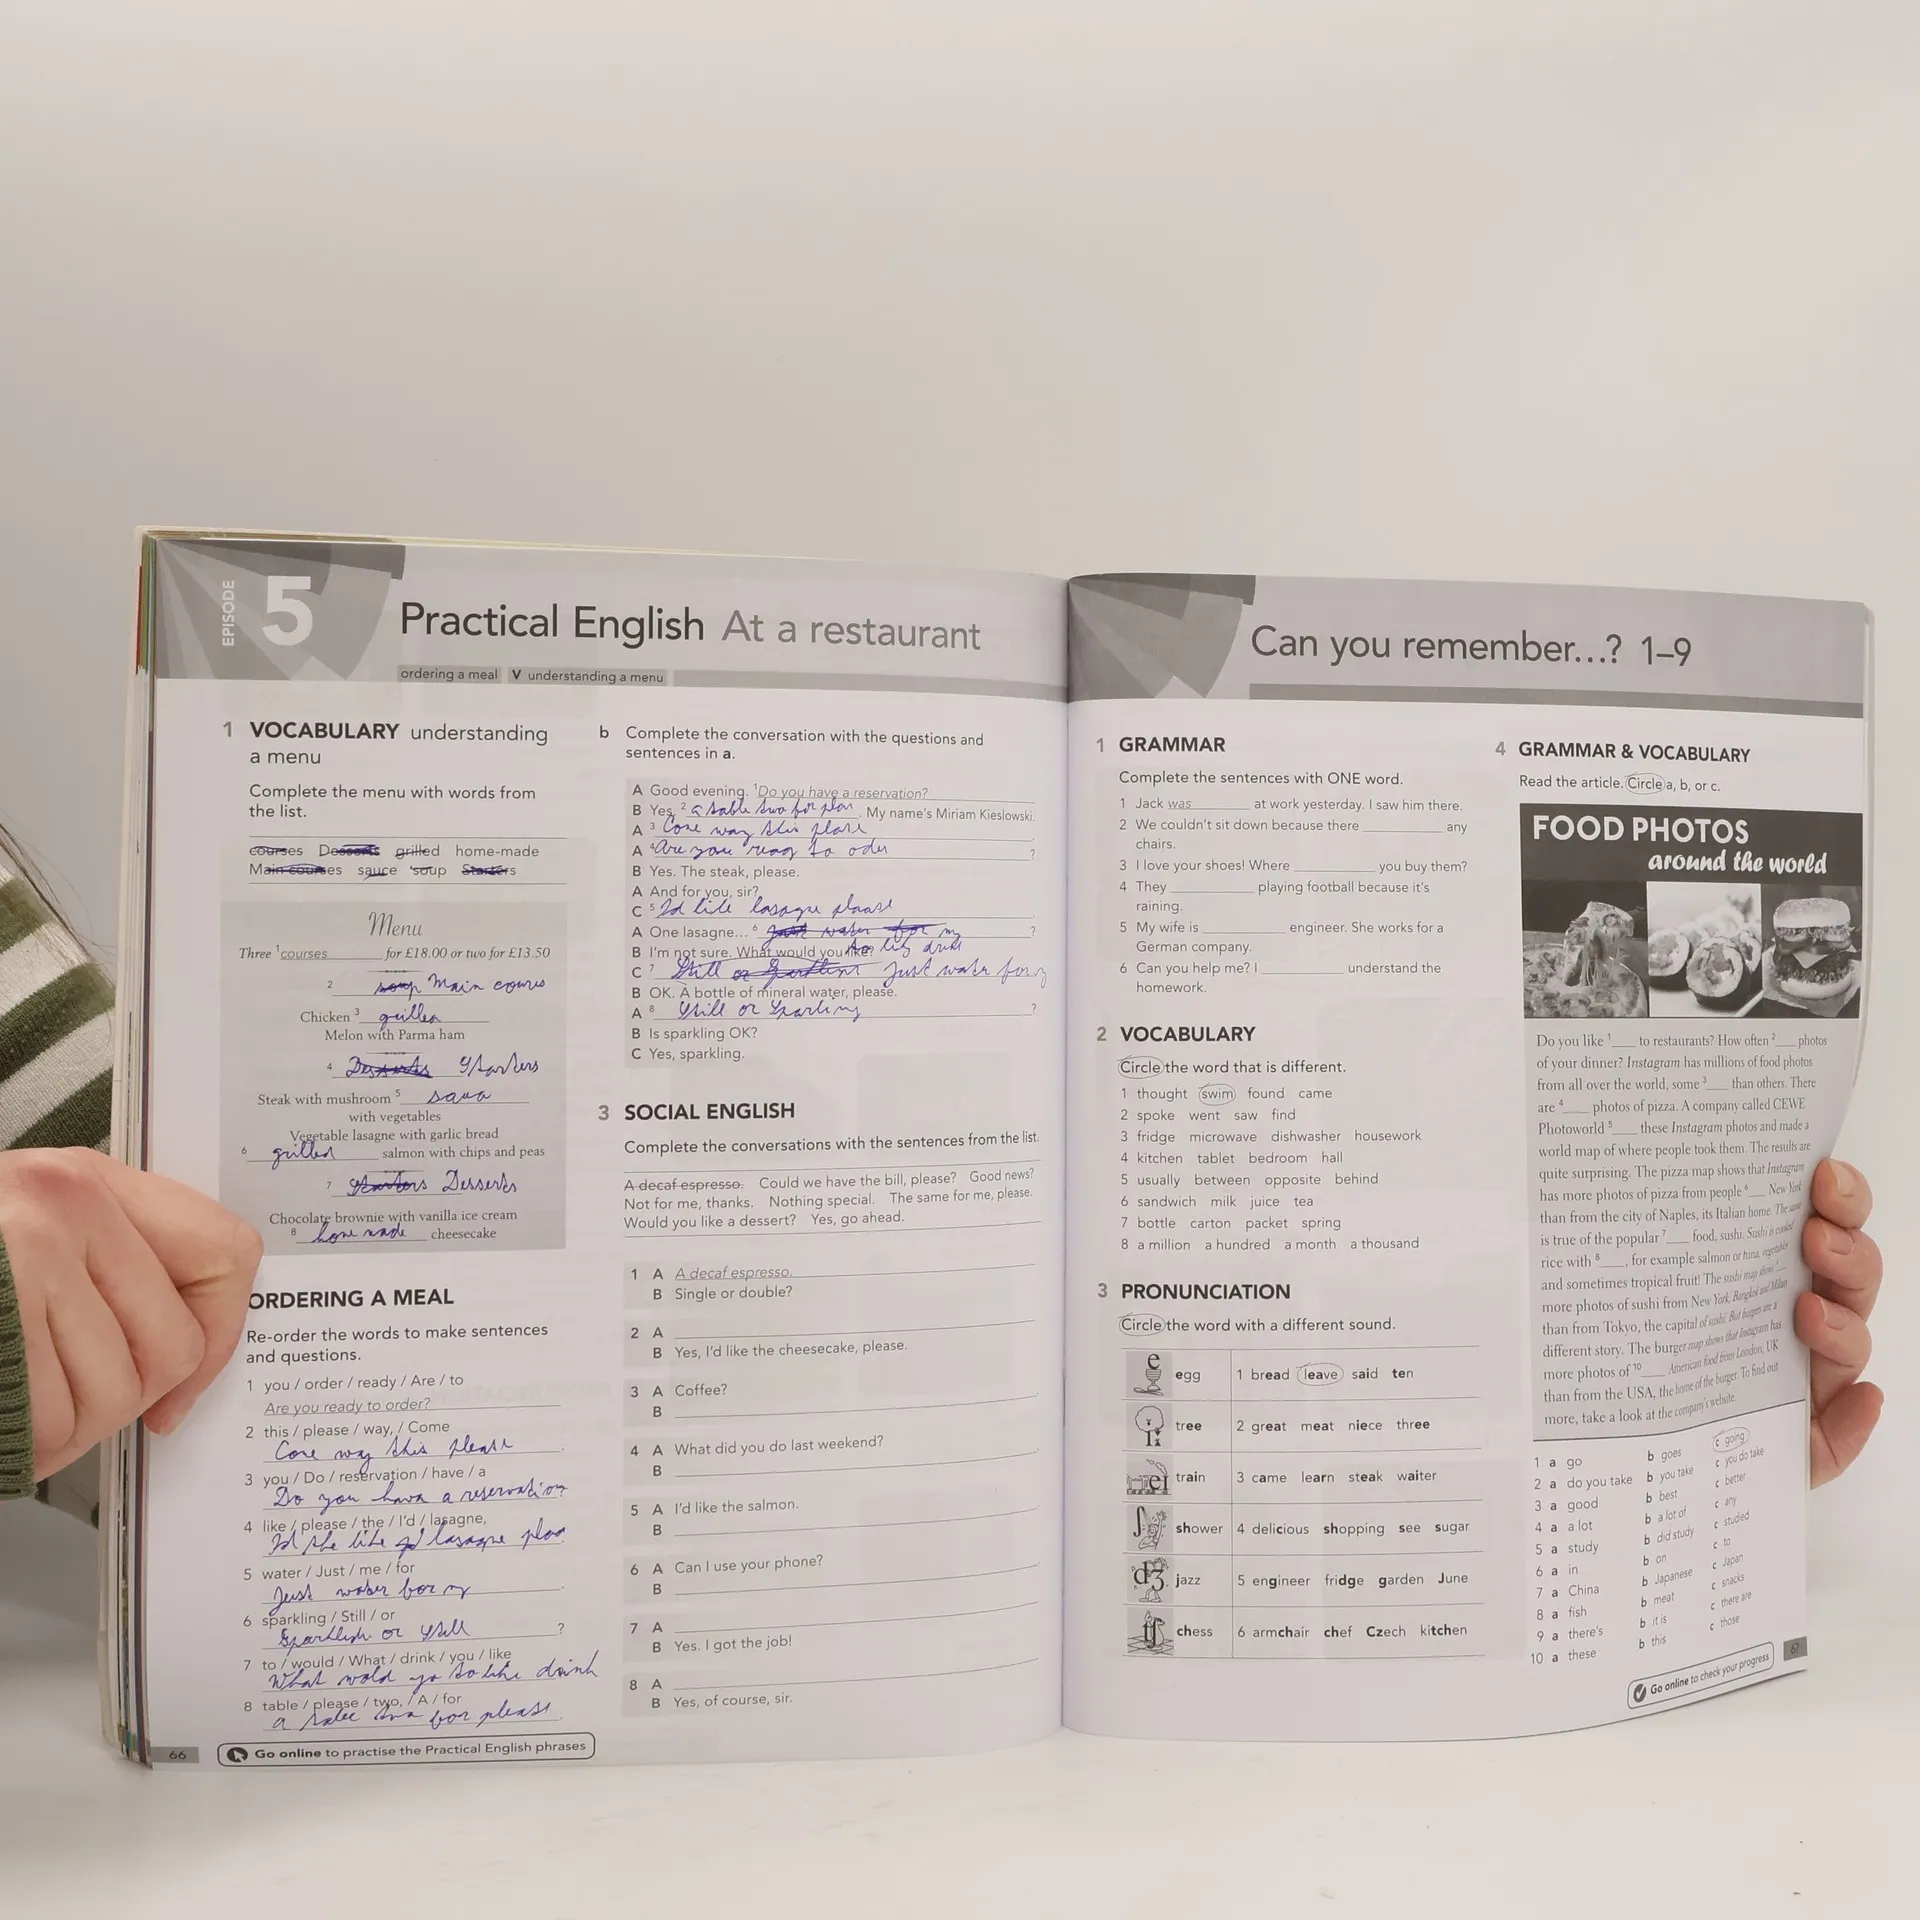 EPISODE
5
Practical English At a restaurant
ordering a meal V understanding a menu
1 VOCABULARY understanding
a menu
Complete the menu with words from
the list.
courses Desserts grilled home-made
Main courses sauce soup Starters
Menu
Three 1 courses for £18.00 or two for £13.50
2 soup Main coures
Chicken 3 grilled
Melon with Parma ham
4 Desserts Starters
Steak with mushroom 5
with vegetables
Vegetable lasagne with garlic bread
6 grilled salmon with chips and peas
7 Starters Desserts
Chocolate brownie with vanilla ice cream
8 home made cheesecake
ORDERING A MEAL
Re-order the words to make sentences
and questions.
1 you / order / ready / Are / to
Are you ready to order?
2 this / please / way, / Come
way this please
3 you / Do / reservation / have / a
Do you have a reservation?
4 like / please / the / I'd / lasagne,
I'd the like lasagne
5 water / Just / me / for
Just water for my
6 sparkling / Still / or
or Still ?
7 to / would / What / drink / you / like
What wold yo to like drink
8 table / please / two, / A / for
a for please
66 Go online to practise the Practical English phrases
b Complete the conversation with the questions and
sentences in a.
A Good evening. 1 Do you have a reservation?
B Yes, 2 a table two for . My name's Miriam Kieslowski.
A 3 way this
A 4 Are you to ?
B Yes. The steak, please.
A And for you, sir?
C 5 I'd like lasagne
A One lasagne... 6 Just water for my ?
B I'm not sure. What would you like?
C 7 Still or Just water for my
B OK. A bottle of mineral water, please.
A 8 Still or Sparling ?
B Is sparkling OK?
C Yes, sparkling.
3 SOCIAL ENGLISH
Complete the conversations with the sentences from the list.
A decaf espresso. Could we have the bill, please? Good news?
Not for me, thanks. Nothing special. The same for me, please.
Would you like a dessert? Yes, go ahead.
1 A A decaf espresso.
B Single or double?
2 A
B Yes, I'd like the cheesecake, please.
3 A Coffee?
B
4 A What did you do last weekend?
B
5 A I'd like the salmon.
B
6 A Can I use your phone?
B
7 A
B Yes. I got the job!
8 A
B Yes, of course, sir.
Can you remember...? 1–9
1 GRAMMAR
Complete the sentences with ONE word.
1 Jack was at work yesterday. I saw him there.
2 We couldn't sit down because there any
chairs.
3 I love your shoes! Where you buy them?
4 They playing football because it's
raining.
5 My wife is engineer. She works for a
German company.
6 Can you help me? I understand the
homework.
2 VOCABULARY
Circle the word that is different.
1 thought swim found came
2 spoke went saw find
3 fridge microwave dishwasher housework
4 kitchen tablet bedroom hall
5 usually between opposite behind
6 sandwich milk juice tea
7 bottle carton packet spring
8 a million a hundred a month a thousand
3 PRONUNCIATION
Circle the word with a different sound.
e egg 1 bread leave said ten
iː tree 2 great meat niece three
eɪ train 3 came learn steak waiter
ʃ shower 4 delicious shopping see sugar
dʒ jazz 5 engineer fridge garden June
tʃ chess 6 armchair chef Czech kitchen
4 GRAMMAR & VOCABULARY
Read the article. Circle a, b, or c.
FOOD PHOTOS
around the world
Do you like 1 to restaurants? How often 2 photos
of your dinner? Instagram has millions of food photos
from all over the world, some 3 than others. There
are 4 photos of pizza. A company called CEWE
Photoworld 5 these Instagram photos and made a
world map of where people took them. The results are
quite surprising. The pizza map shows that Instagram
has more photos of pizza from people 6 New York
than from the city of Naples, its Italian home. The same
is true of the popular 7 food, sushi. Sushi is cooked
rice with 8 , for example salmon or tuna, vegetables
and sometimes tropical fruit! The sushi map shows 9
more photos of sushi from New York, Bangkok and Milan
than from Tokyo, the capital of sushi. But burgers are a
different story. The burger map shows that Instagram has
more photos of 10 American food from London, UK
than from the USA, the home of the burger. To find out
more, take a look at the company's website.
1 a go b goes c going
2 a do you take b you take c you do take
3 a good b best c better
4 a a lot b a lot of c any
5 a study b did study c studied
6 a in b on c to
7 a China b Japanese c Japan
8 a fish b meat c snacks
9 a there's b it is c there are
10 a these b this c those
Go online to check your progress 67